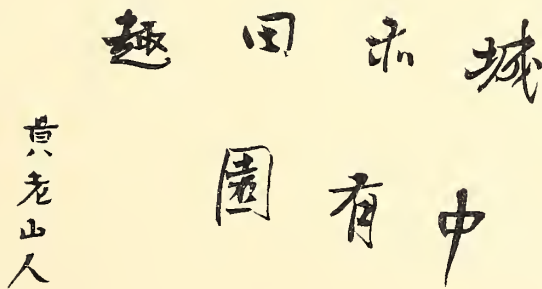 城中
亦有
田園
趣
黄老山人